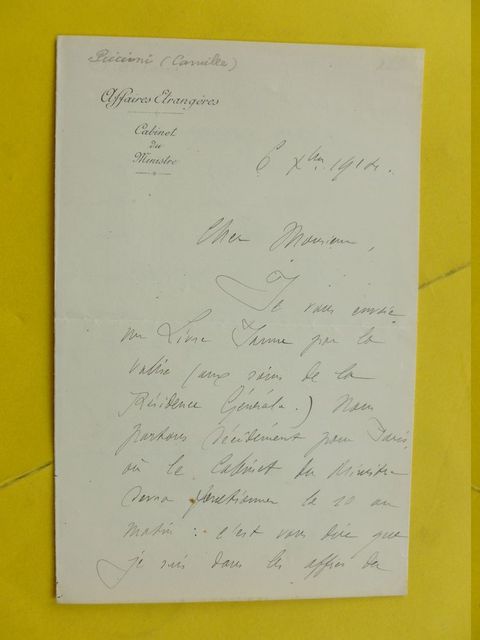 Piccioni (Camille)
Affaires Etrangères
Cabinet
du
Ministre
6 Xbre 1914.
Cher Monsieur,
Je vous envoie
un Livre Jaune par la
valise (aux soins de la
Résidence Générale.) Nous
partons décidément pour Paris,
où le Cabinet du Ministre
devra fonctionner le 10 au
matin : c'est vous dire que
je suis dans les affres du